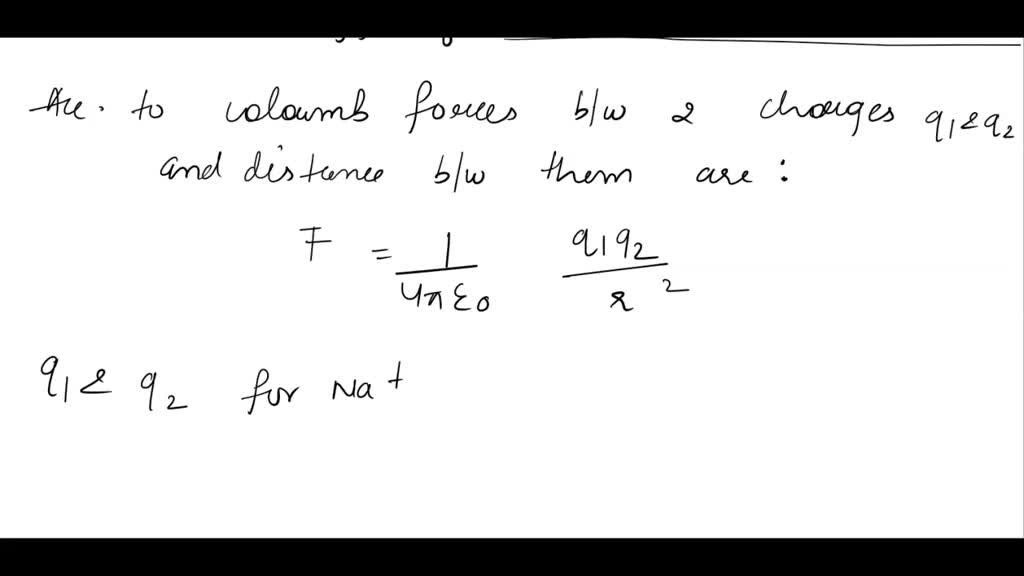 Acc. to coloumb forces b/w 2 charges q1 & q2
and distance b/w them are :
F = 1/4πε0 q1q2/r²
q1 & q2 for Na+